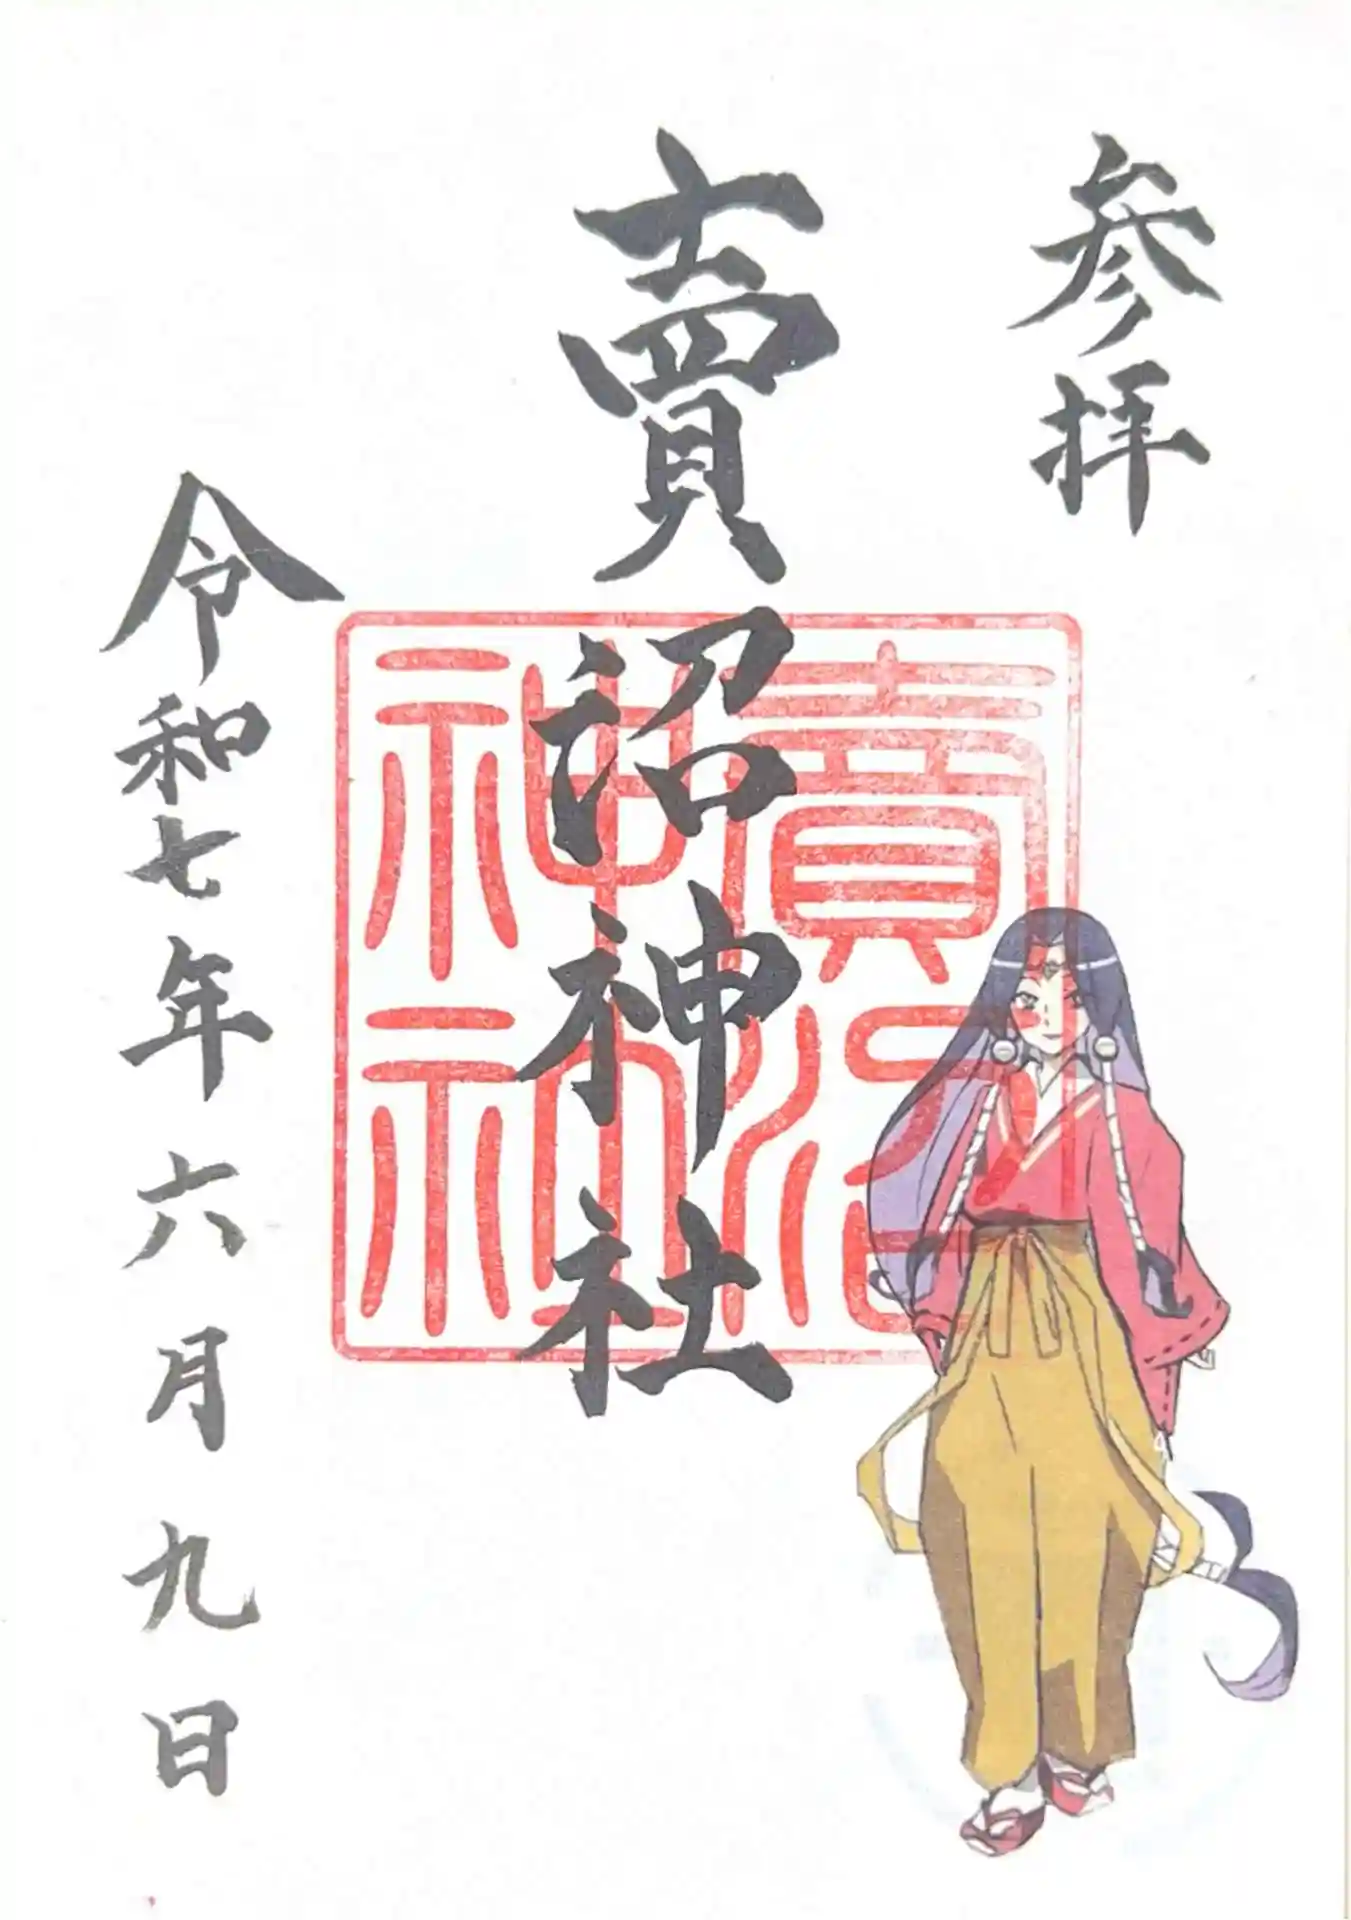 参拝
賣沼神社
賣沼
神社
令和七年六月九日